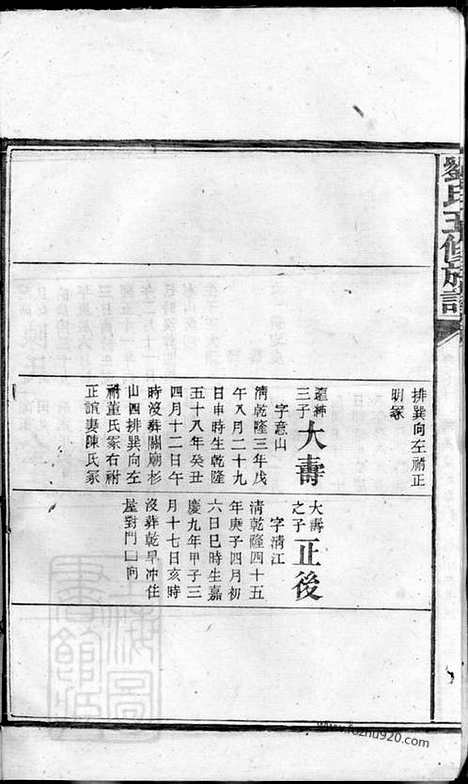 劉氏五修族譜
排巽向左祔正
明冢
三子
大壽
字意山
清乾隆三年戊
午八月二十九
日申時生乾隆
五十八年癸丑
四月十二日午
時沒葬關廟杉
山四排巽向左
祔董氏冢右祔
正誼妻陳氏冢
大壽
之子
正後
字清江
清乾隆四十五
年庚子四月初
六日巳時生嘉
慶九年甲子三
月十七日亥時
沒葬乾旱冲住
屋對門山向
上海圖書館
www.fuzhu920.com